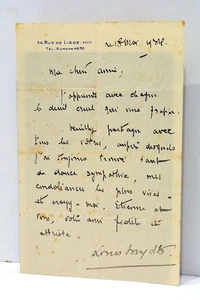 34, RUE DE LIÈGE. VIIIe
TEL. EUROPE 4670
le 18 Mai, 1934.
Ma chère amie,
J'apprends avec chagrin
le deuil cruel qui vous frappe.
Veuillez partager avec
tous les vôtres, auprès desquels
j'ai toujours trouvé tant
de douce sympathie, mes
condoléances les plus vives -
et croyez-moi, Etienne et
vous, votre ami fidèle et
attristé.
Louis